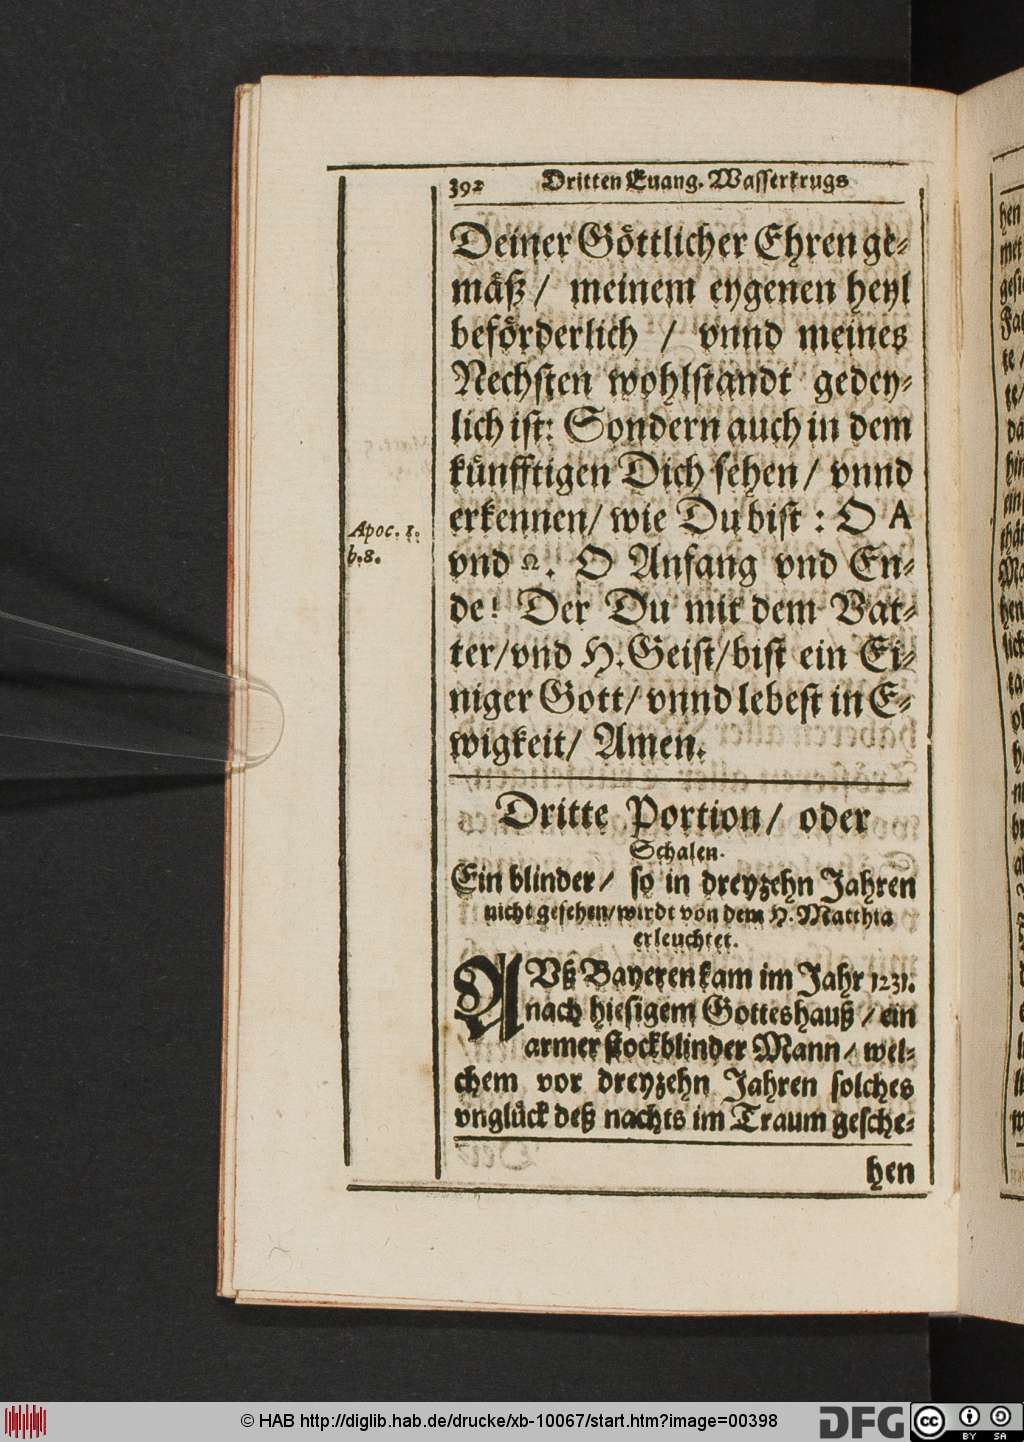 392 Dritten Euang. Wasserkrugs
Deiner Göttlicher Ehren ge-
mäß / meinem eygenen heyl
beförderlich / vnnd meines
Nechsten wohlstandt gedey-
lich ist: Sondern auch in dem
künfftigen Dich sehen / vnnd
erkennen / wie Du bist : O A
vnd Ω. O Anfang vnd En-
de! Der Du mit dem Vat-
ter / vnd H. Geist / bist ein Ei-
niger Gott / vnnd lebest in E-
wigkeit / Amen.
Apoc. 1.
b. 8.
Dritte Portion / oder
Schalen.
Ein blinder / so in dreyzehn Jahren
nicht gesehen / wirdt von dem H. Matthia
erleuchtet.
AVß Bayeren kam im Jahr 1231.
nach hiesigem Gotteshauß / ein
armer stockblinder Mann / wel-
chem vor dreyzehn Jahren solches
vnglück deß nachts im Traum gesche-
hen
© HAB http://diglib.hab.de/drucke/xb-10067/start.htm?image=00398
DFG
cc BY SA